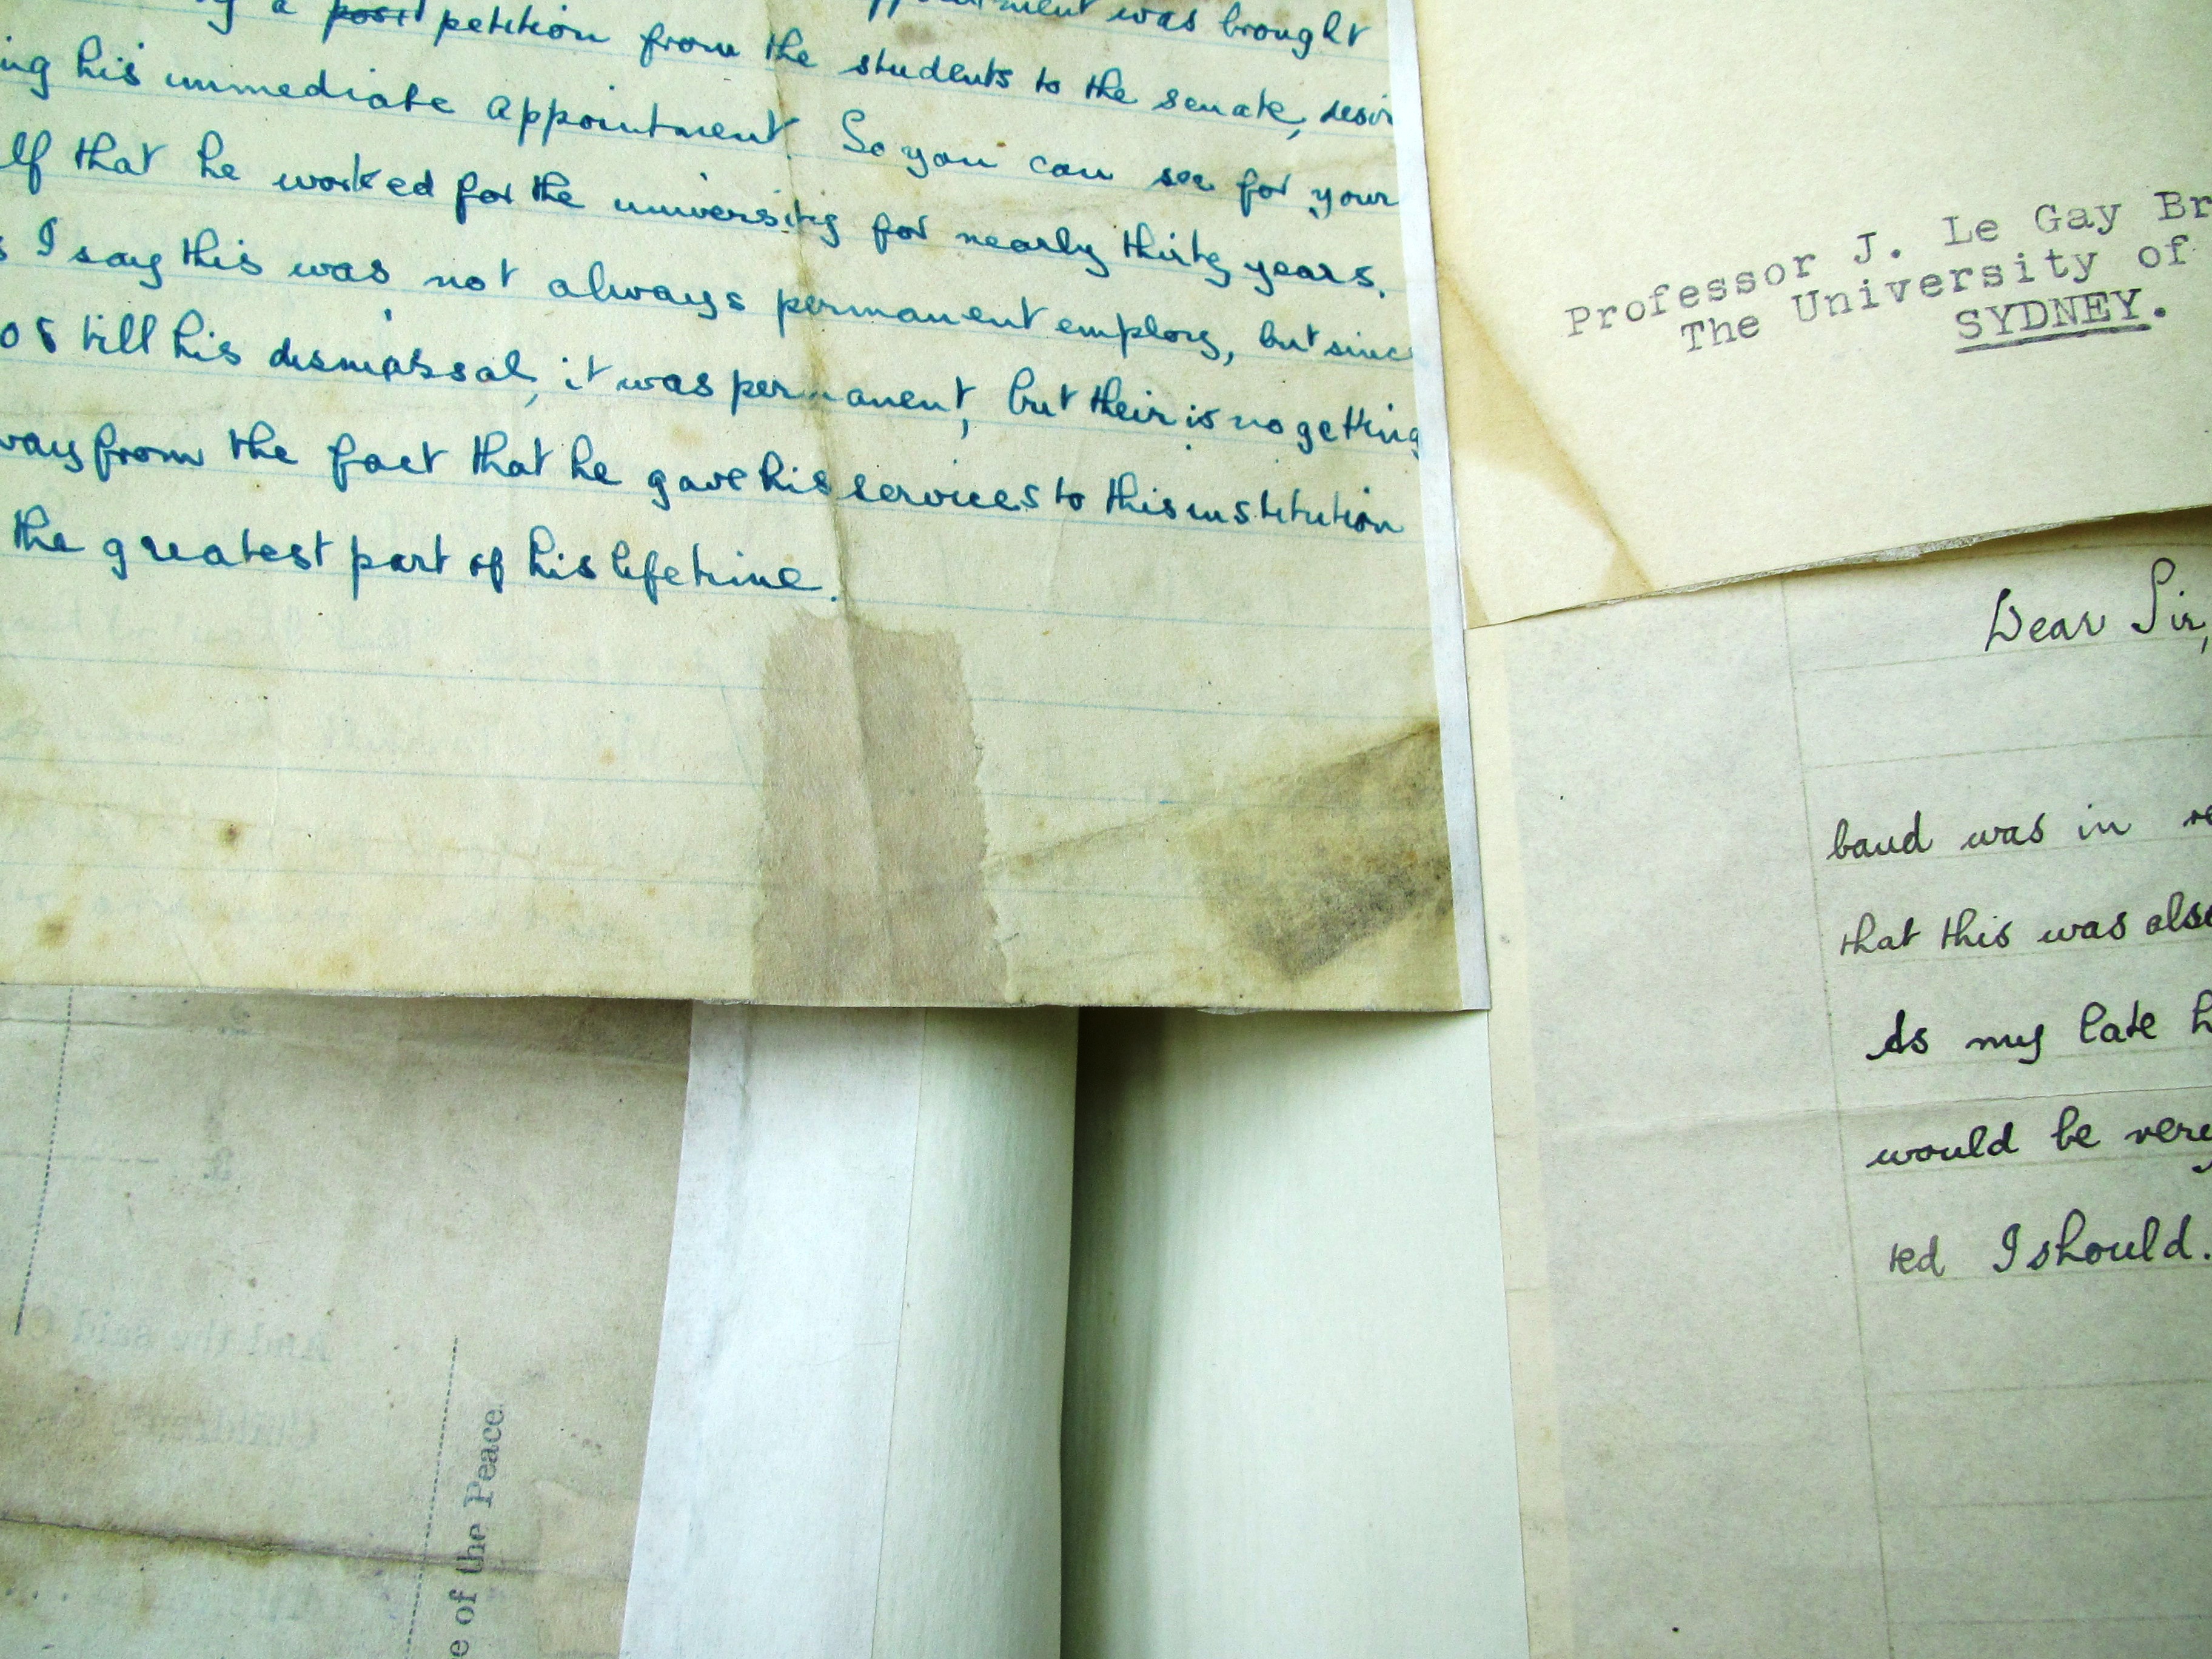 a posit petition from the students to the senate, desir
was brought
ing his immediate appointment. So you can see for your
lf that he worked for the university for nearly thirty years.
s I say this was not always permanent employ, but since
08 till his dismissal, it was permanent, but their is no getting
way from the fact that he gave his services to this institution
the greatest part of his lifetime.
Professor J. Le Gay Br
The University of
SYDNEY.
Dear Sir,
band was in re
that this was also
As my late h
would be very
ted I should.
2.
3.
And the said
Children
e of the Peace.